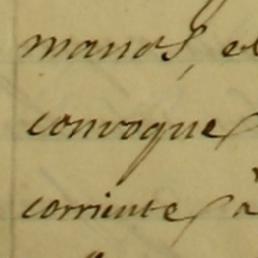 manos, el
convoque
corriente a